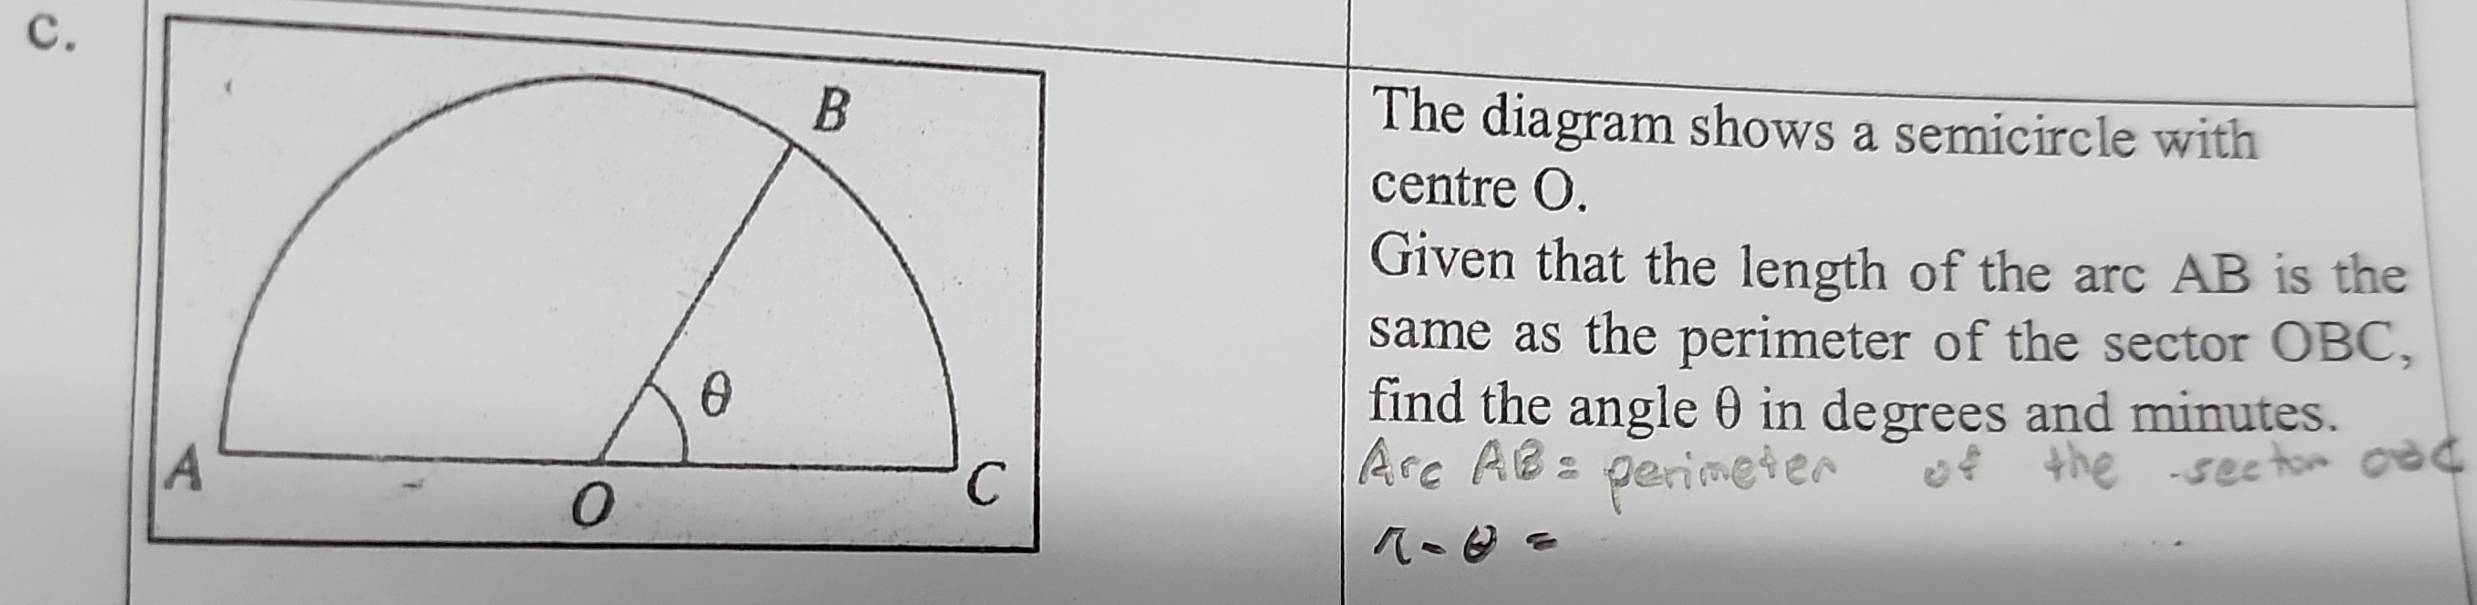 c.
B
θ
A
O
C
The diagram shows a semicircle with
centre O.
Given that the length of the arc AB is the
same as the perimeter of the sector OBC,
find the angle θ in degrees and minutes.
Arc AB = perimeter of the sector OBC
π - θ =